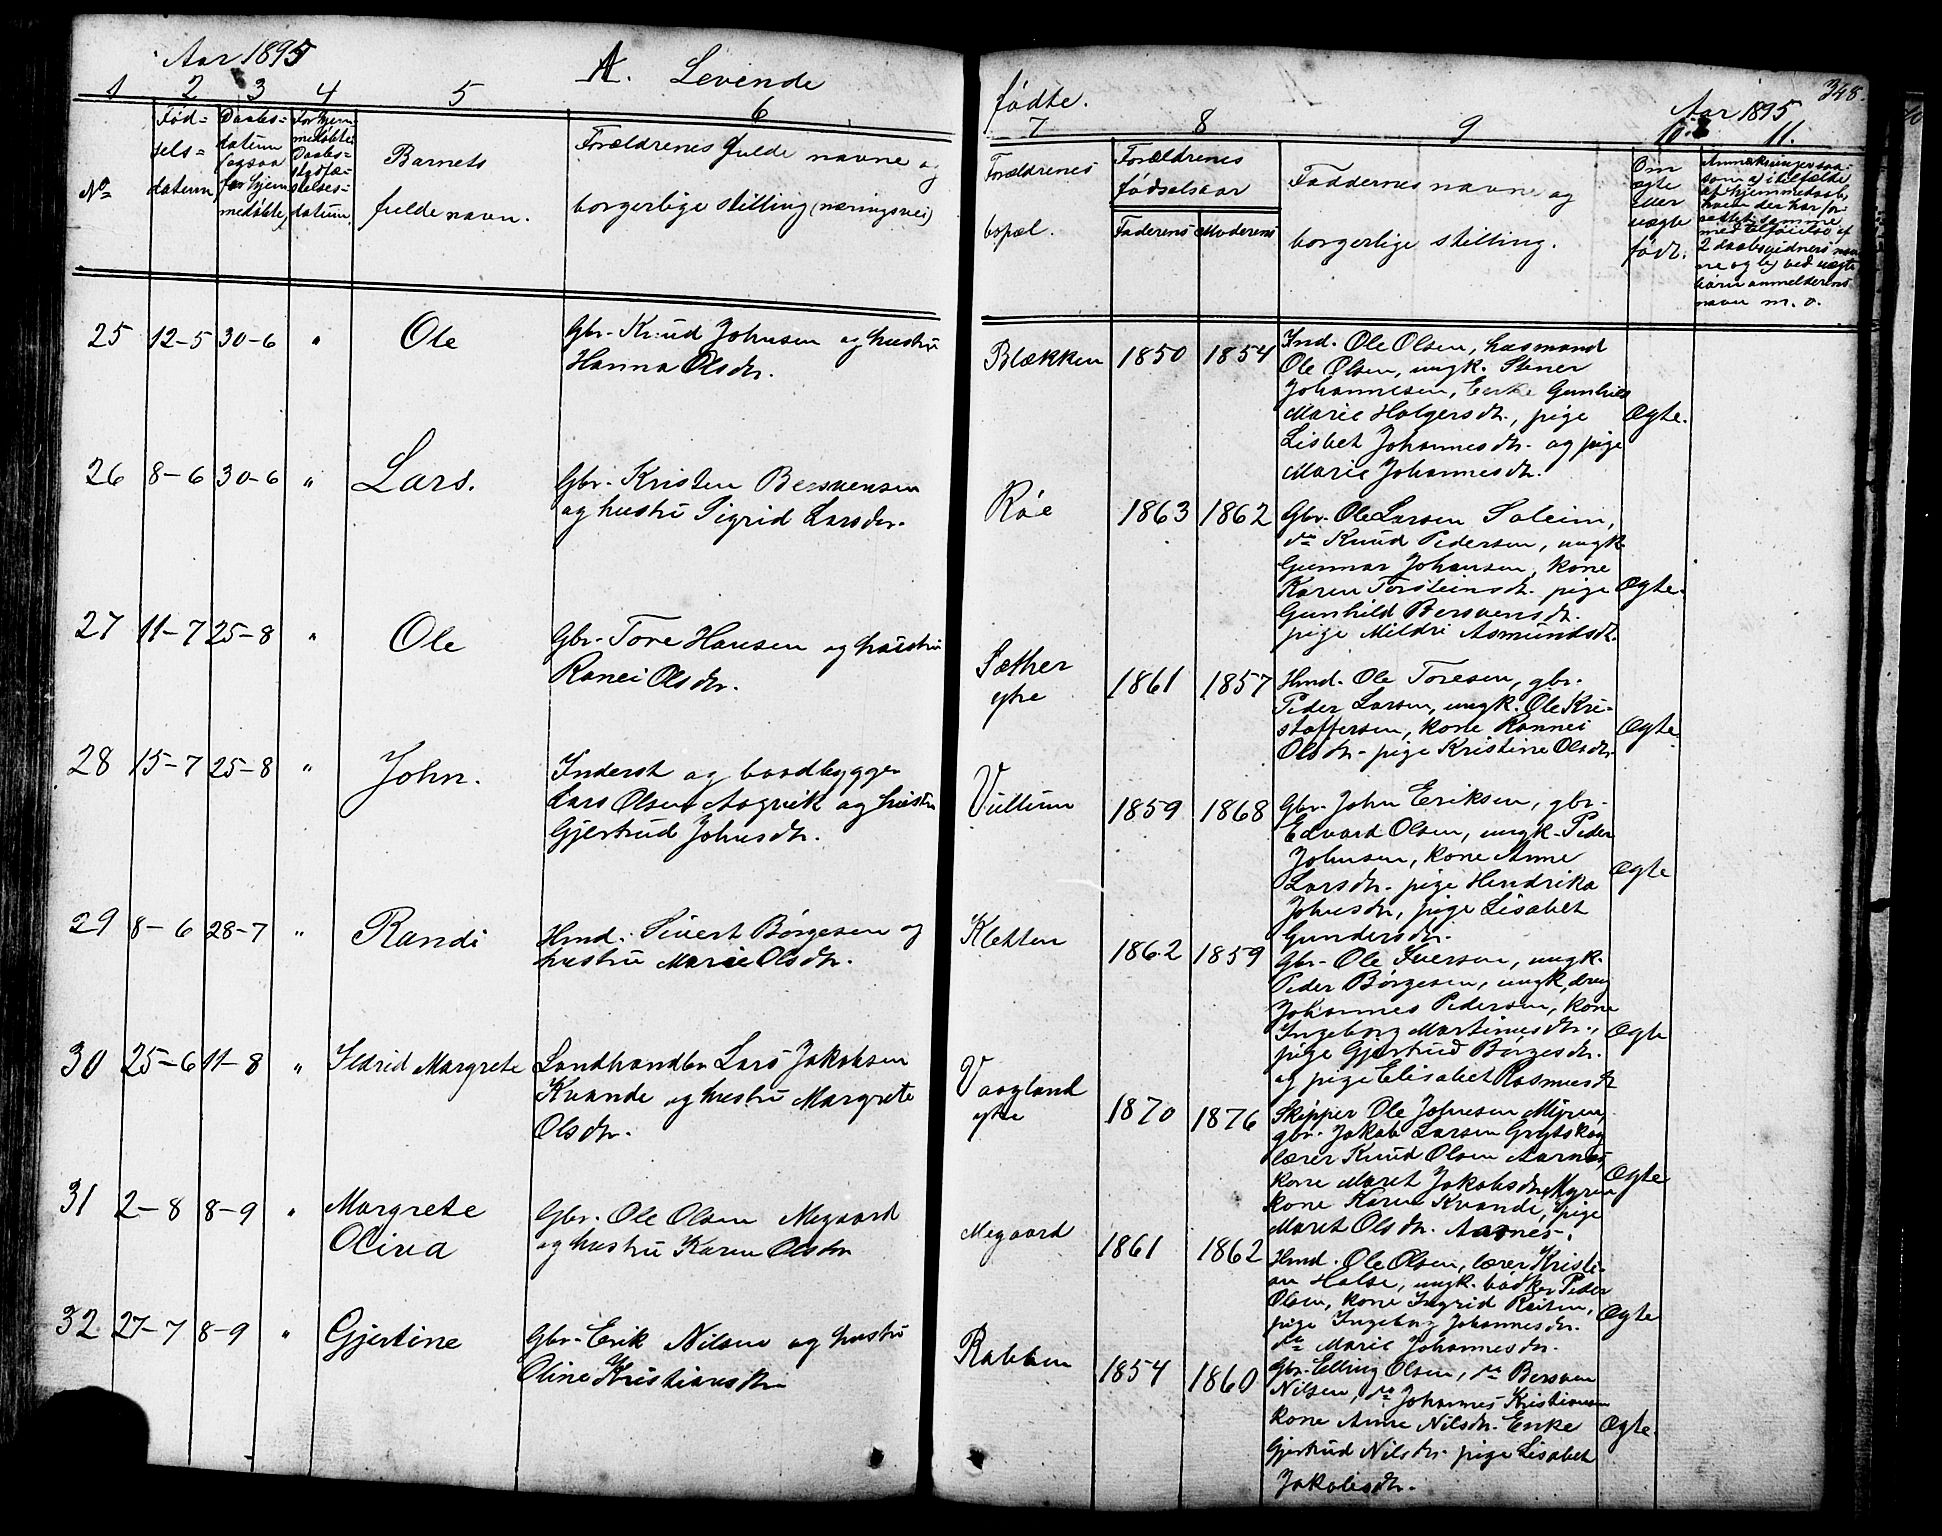 Aar 1895
A. Levende
1 2 3 4 5 6
No
Fød-
sels-
datum
Daabs-
datum
(ogsaa
for hjem
medøbte)
For hjem
medøbte:
Daabs-
stadfæ-
stelses-
datum
Barnets
fulde navn.
Forældrenes fulde navne og
borgerlige stilling (næringsvei)
25 12-5 30-6 " Ole
Gbr. Knud Johnsen og hustru
Hanna Olsdtr.
26 8-6 30-6 " Lars.
Gbr. Kristen Bersvensen
og hustru Sigrid Larsdtr.
27 11-7 25-8 " Ole
Gbr. Tore Hansen og hustru
Ranei Olsdtr.
28 15-7 25-8 " John.
Inderst og baadbygger
Lars Olsen Aagvik og hustru
Gjertrud Johnsdtr.
29 8-6 28-7 " Randi
Hmd. Sivert Børgesen og
hustru Marie Olsdtr.
30 25-6 11-8 " Ildrid Margrete
Landhandler Lars Jakobsen
Kvande og hustru Margrete
Olsdtr.
31 2-8 8-9 " Margrete
Oliva
Gbr. Ole Olsen Megaard
og hustru Karen Olsdtr
32 27-7 8-9 " Gjertine
Gbr. Erik Nilsen og hustru
Oline Kristiansdtr
348.
fødte.
Aar 1895
7 8 9 10. 11.
Forældrenes
bopæl.
Forældrenes
fødselsaar
Faderens Moderens
Faddernes navne og
borgerlige stilling.
Om
ægte
eller
uægte
født.
Anmærkninger saa-
som a) i tilfælde
af hjemmedaab,
hvem der har for-
rettet samme
med tilføielse af
2 daabsvidners nav-
ne og b) ved uægte
børn anmelderens
navn m. v.
Blækken 1850 1854
Ind. Ole Olsen, husmand
Ole Olsen, ungk. Stener
Johannesen, Enke Gunhild
Marie Holgersdtr., pige
Lisbet Johannesdtr. og pige
Marie Johannesdtr.
Ægte.
Røe 1863 1862
Gbr. Ole Larsen Soleim,
do Knud Pedersen, ungk.
Gunnar Johansen, kone
Karen Torsteinsdtr. pige
Gunhild Bersvensdtr.
pige Mildri Asmundsdtr.
Ægte.
Sæther
ytre
1861 1857
Hmd. Ole Toresen, gbr.
Peder Larsen, ungk. Ole Kri-
stoffersen, kone Rannei
Olsdtr. pige Kristine Olsdtr.
Ægte.
Vullum 1859 1868
Gbr. John Eriksen, gbr.
Edvard Olsen, ungk. Peder
Johnsen, kone Anne
Larsdtr. pige Hendrika
Johnsdtr, pige Lisabet
Gundersdtr.
Ægte
Kletten 1862 1859
Gbr. Ole Iversen, ungk.
Peder Børgesen, ungk, dreng
Johannes Pedersen, kone
Ingeborg Martinusdtr.,
pige Gjertrud Børgesdtr.
og pige Elisabet Rasmusdtr
Ægte
Vaagland
ytre
1870 1876
Skipper Ole Johnsen Myren,
gbr. Jakob Larsen Grytskog
lærer Knud Olsen Aarnes,
kone Maret Jakobsdtr Myren
kone Karen Kvande, pige
Maret Olsdtr. Aarnes.
Ægte
Megaard 1861 1862
Hmd. Ole Olsen, lærer Kristi-
an Halse, ungk. bødker Peder
Olsen, kone Ingrid Reiten,
pige Ingeborg Johannesdtr.
do Marie Johannesdtr.
Ægte
Rabben 1854 1860
Gbr. Elling Olsen, do Bersven
Nilsen, do Johannes Kristiansen
kone Anne Nilsdtr. Enke
Gjertrud Nilsdtr. pige Lisabet
Jakobsdtr.
Ægte.